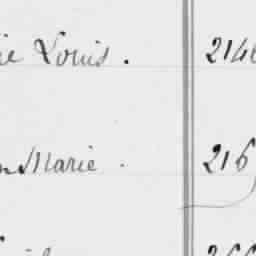 ie Louis . 214
n Marie . 216